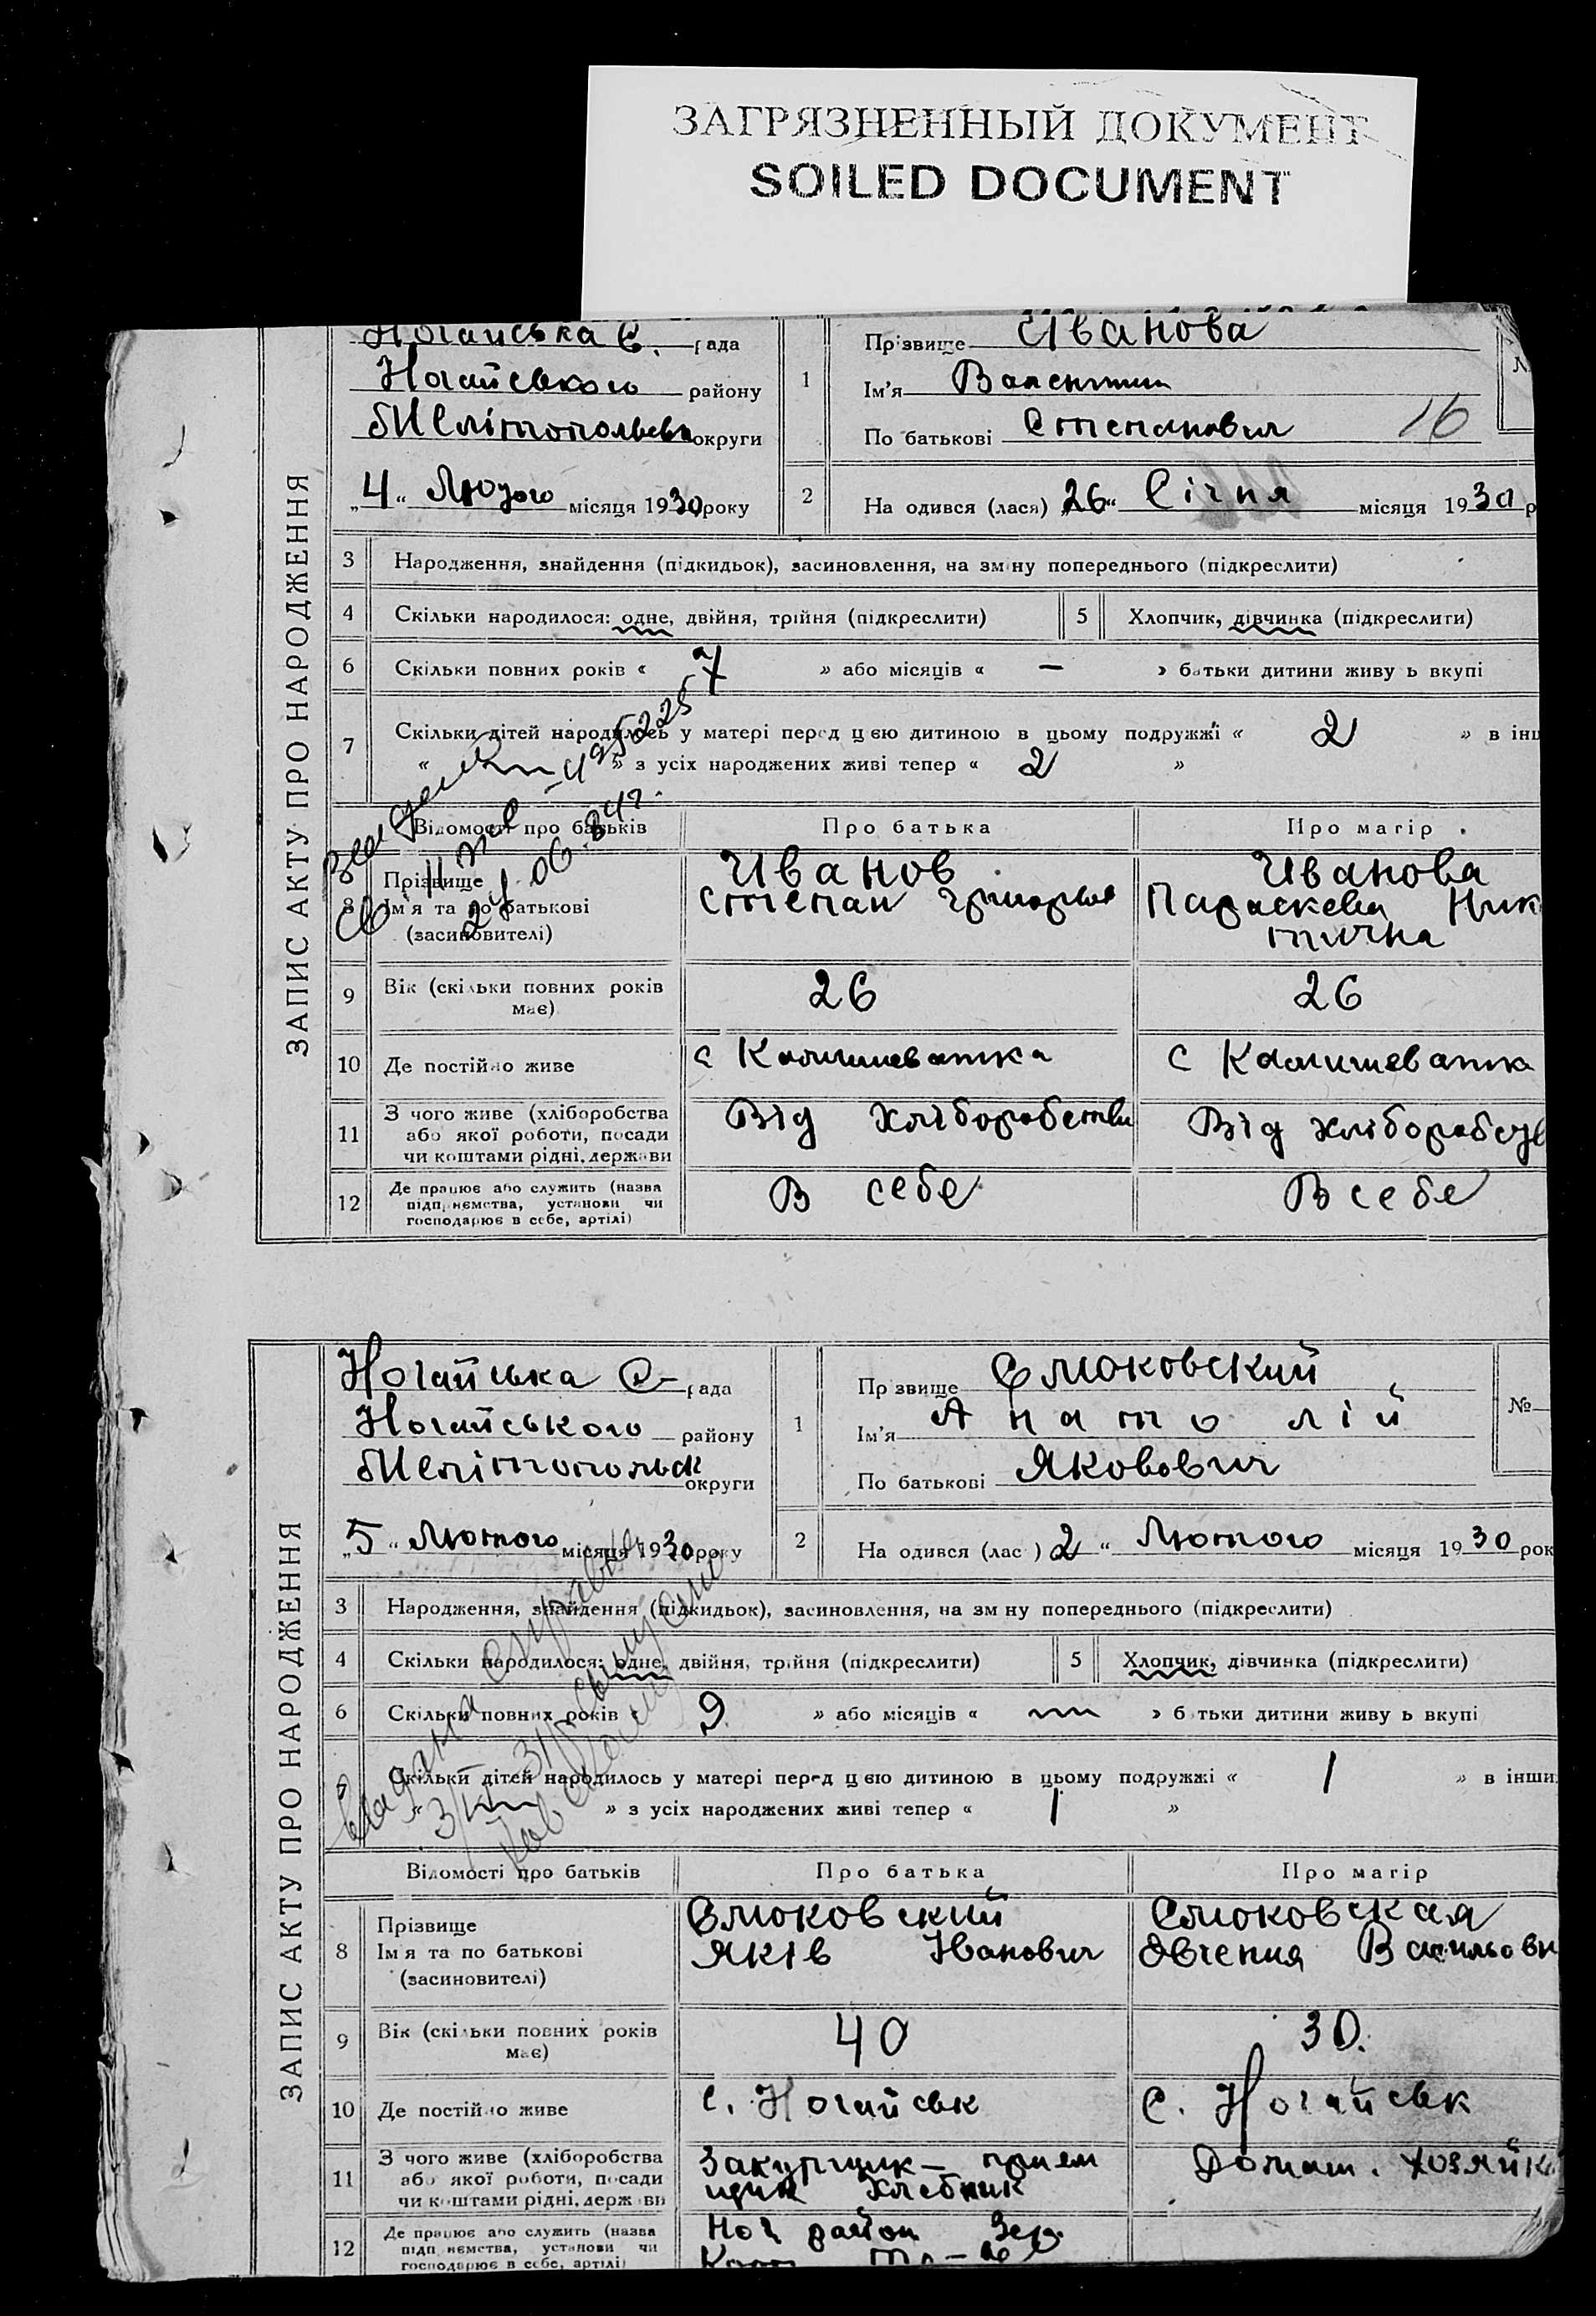 ЗАГРЯЗНЕННЫЙ ДОКУМЕНТ
SOILED DOCUMENT
ЗАПИС АКТУ ПРО НАРОДЖЕННЯ
Ногайська С. рада
Ногайського району
Мелітопольськ округи
„4“ Лютого місяця 1930 року
1
Прізвище Иванова
Ім'я Валентин
По батькові Степанович
16
2
На одився (лася) 26“ Січня місяця 1930 р
3 Народження, знайдення (підкидьок), засиновлення, на зміну попереднього (підкреслити)
4 Скільки народилося: одне, двійня, трійня (підкреслити) 5 Хлопчик, дівчинка (підкреслити)
6 Скільки повних років « 7 » або місяців « — » батьки дитини живу ь вкупі
7 Скільки дітей народилось у матері перед цією дитиною в цьому подружжі « 2 » в інш
« » з усіх народжених живі тепер « 2 »
Відомості про батьків Про батька Про матір
8 Прізвище Иванов Иванова
Ім'я та по батькові Степан Параскева Ник
(засиновителі) тична
9 Вік (скільки повних років має) 26 26
10 Де постійно живе с Камишеватка с Камишеватка
11 З чого живе (хліборобства Від хліборобства Від хліборобст
або якої роботи, посади
чи коштами рідні, держави
12 Де працює або служить (назва В себе В себе
підприємства, установи чи
господарює в себе, артілі)
ЗАПИС АКТУ ПРО НАРОДЖЕННЯ
Ногайська С- рада
Ногайського району
Мелітопольськ округи
„5“ Лютого місяця 1930 року
1
Пр звище Слюковский
Ім'я Анатолій
По батькові Яковович
№
2
На одився (лас ) 2 “ Лютого місяця 1930 рок
3 Народження, знайдення (підкидьок), засиновлення, на зм ну попереднього (підкреслити)
4 Скільки народилося: одне, двійня, трійня (підкреслити) 5 Хлопчик, дівчинка (підкреслити)
6 Скільки повних років « 9 » або місяців « » б тьки дитини живу ь вкупі
7 Скільки дітей народилось у матері перед цією дитиною в цьому подружжі « 1 » в інши
« » з усіх народжених живі тепер « 1 »
Відомості про батьків Про батька Про матір
8 Прізвище Слюковский Слюковская
Ім'я та по батькові Яків Іванович Овгения Васильовн
(засиновителі)
9 Вік (скільки повних років має) 40 30.
10 Де постійно живе С. Ногайськ С. Ногайськ
11 З чого живе (хліборобства Закупщик — прием Домаш. хозяйк
або якої роботи, посади щик Хлебник
чи коштами рідні, держави
12 Де працює або служить (назва Ног район
підприємства, установи чи
господарює в себе, артілі)